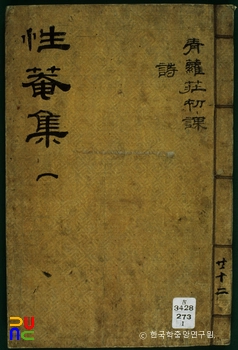 性菴集 一
青蘿莊初課
詩
共十二
3428
273
1
© 한국학중앙연구원